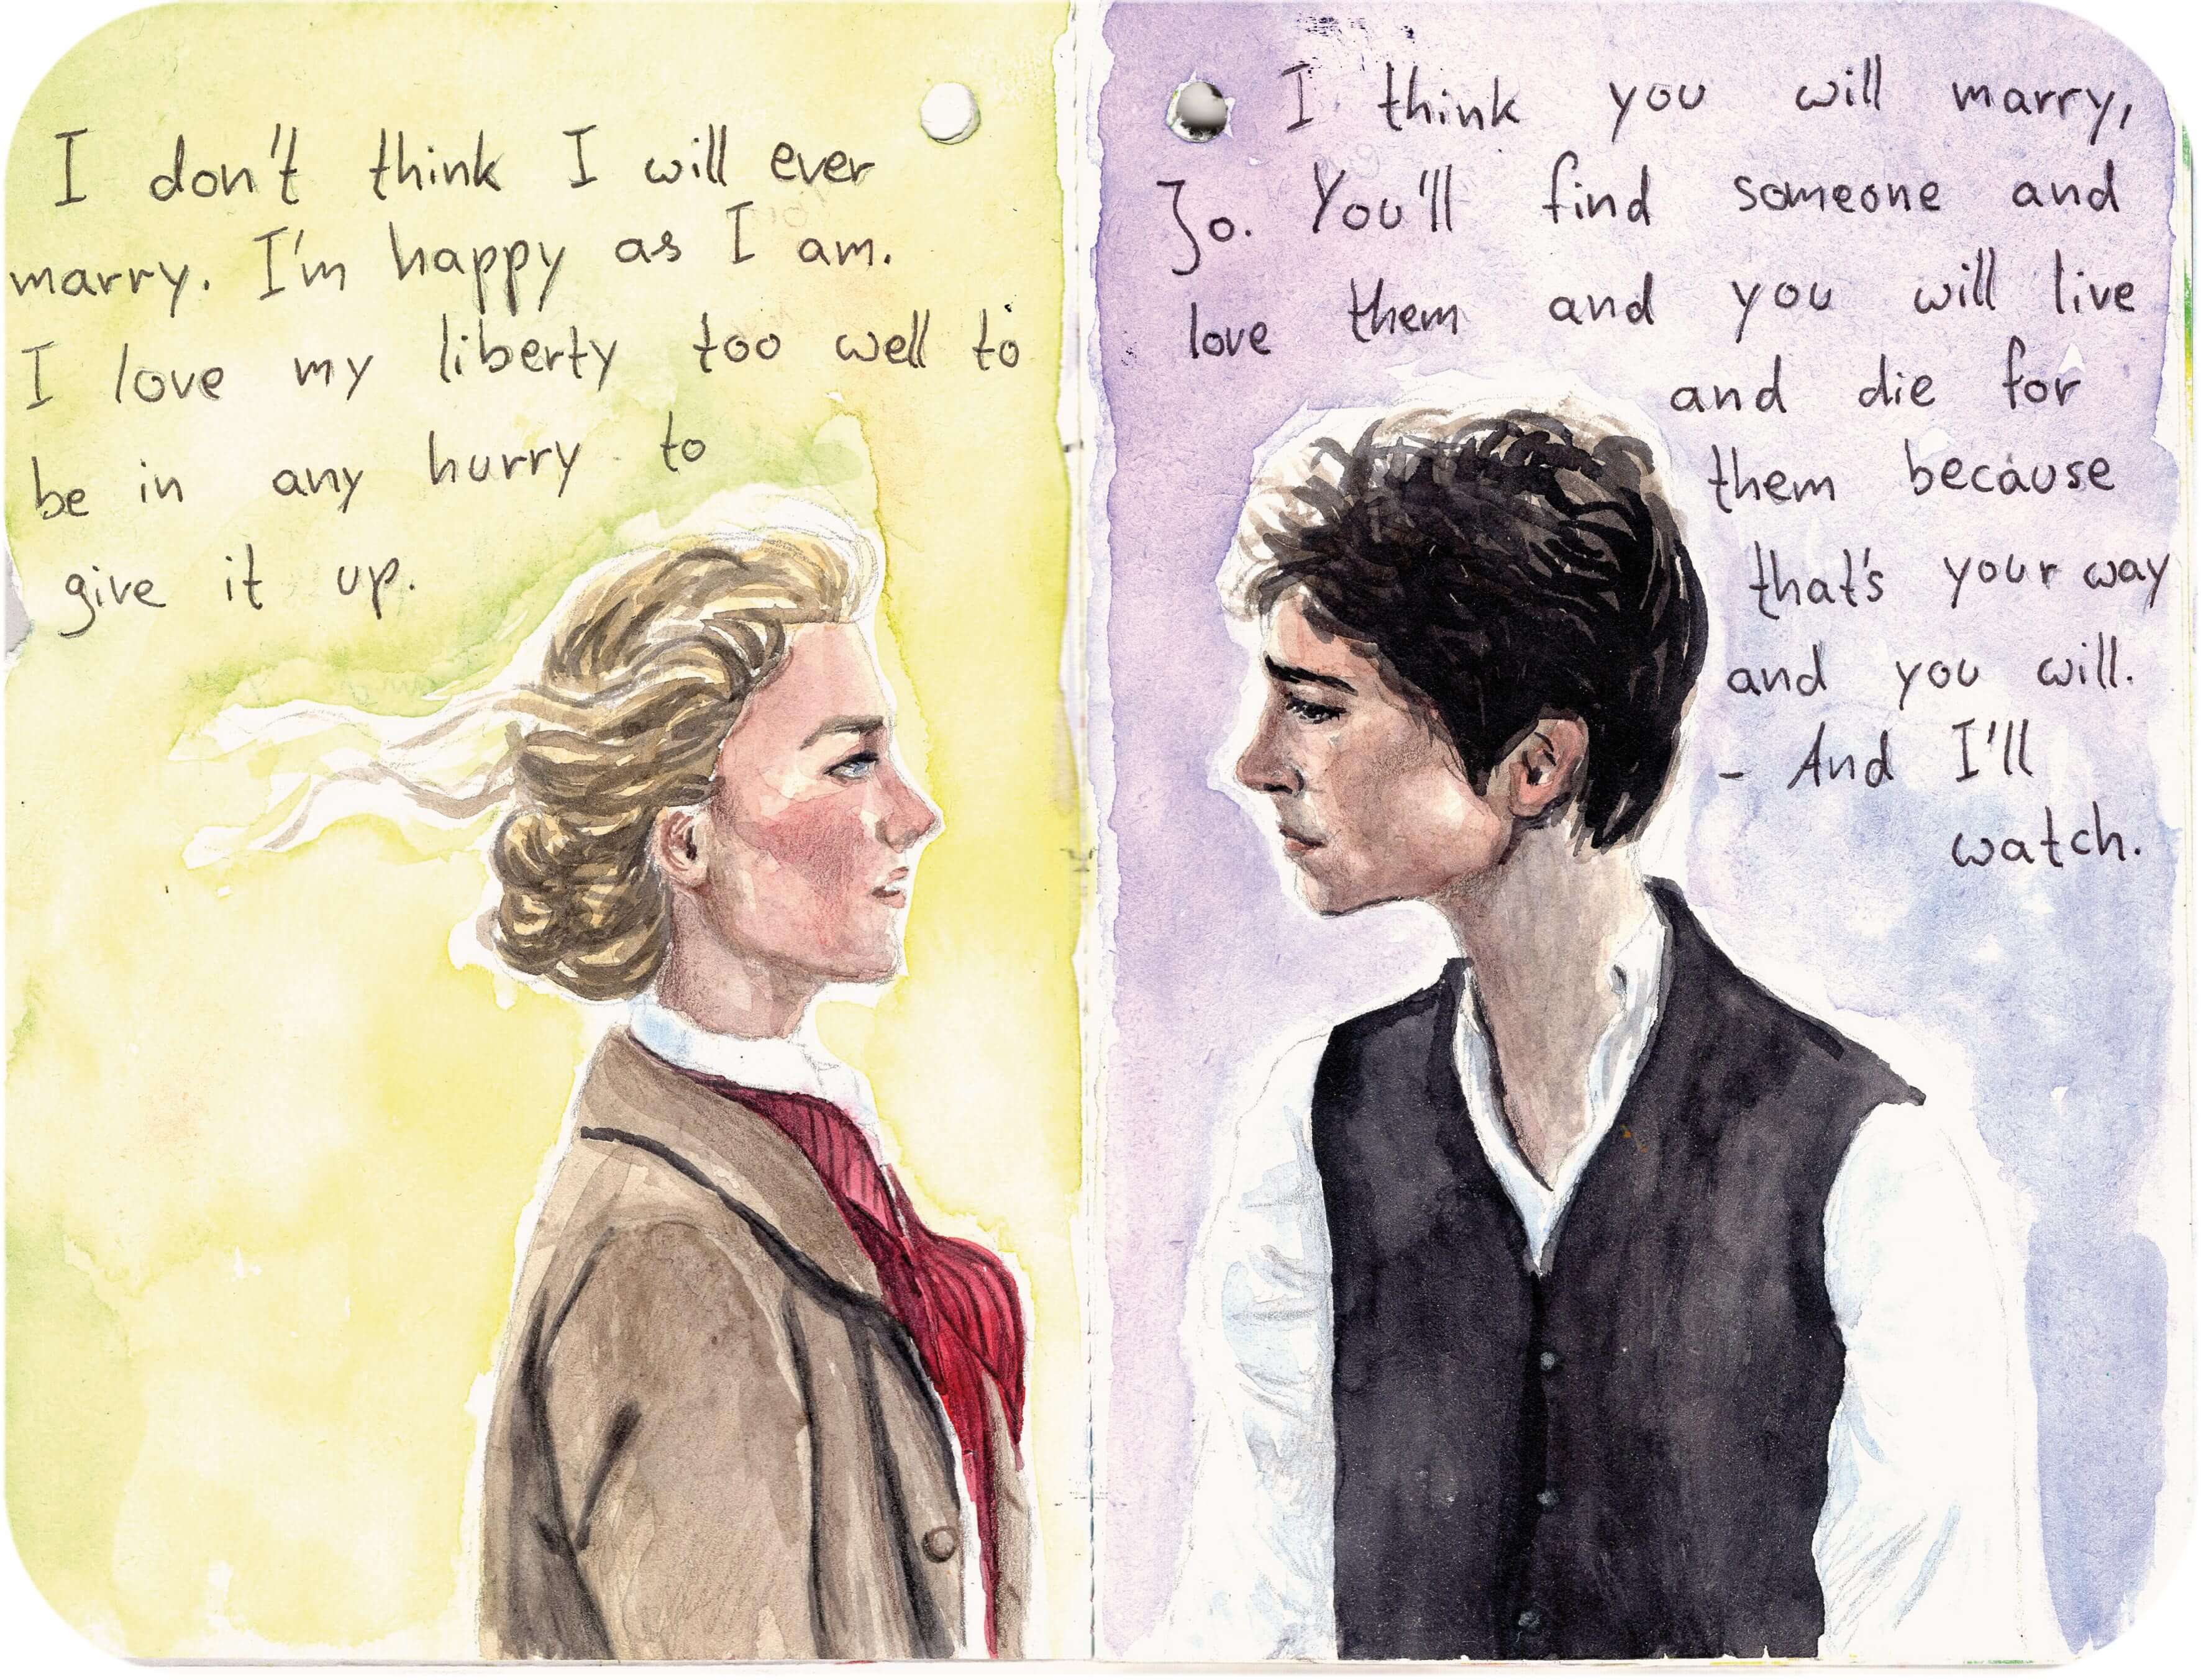 I don't think I will ever
marry. I'm happy as I am.
I love my liberty too well to
be in any hurry to
give it up.
I think you will marry,
Jo. You'll find someone and
love them and you will live
and die for
them because
that's your way
and you will.
- And I'll
watch.